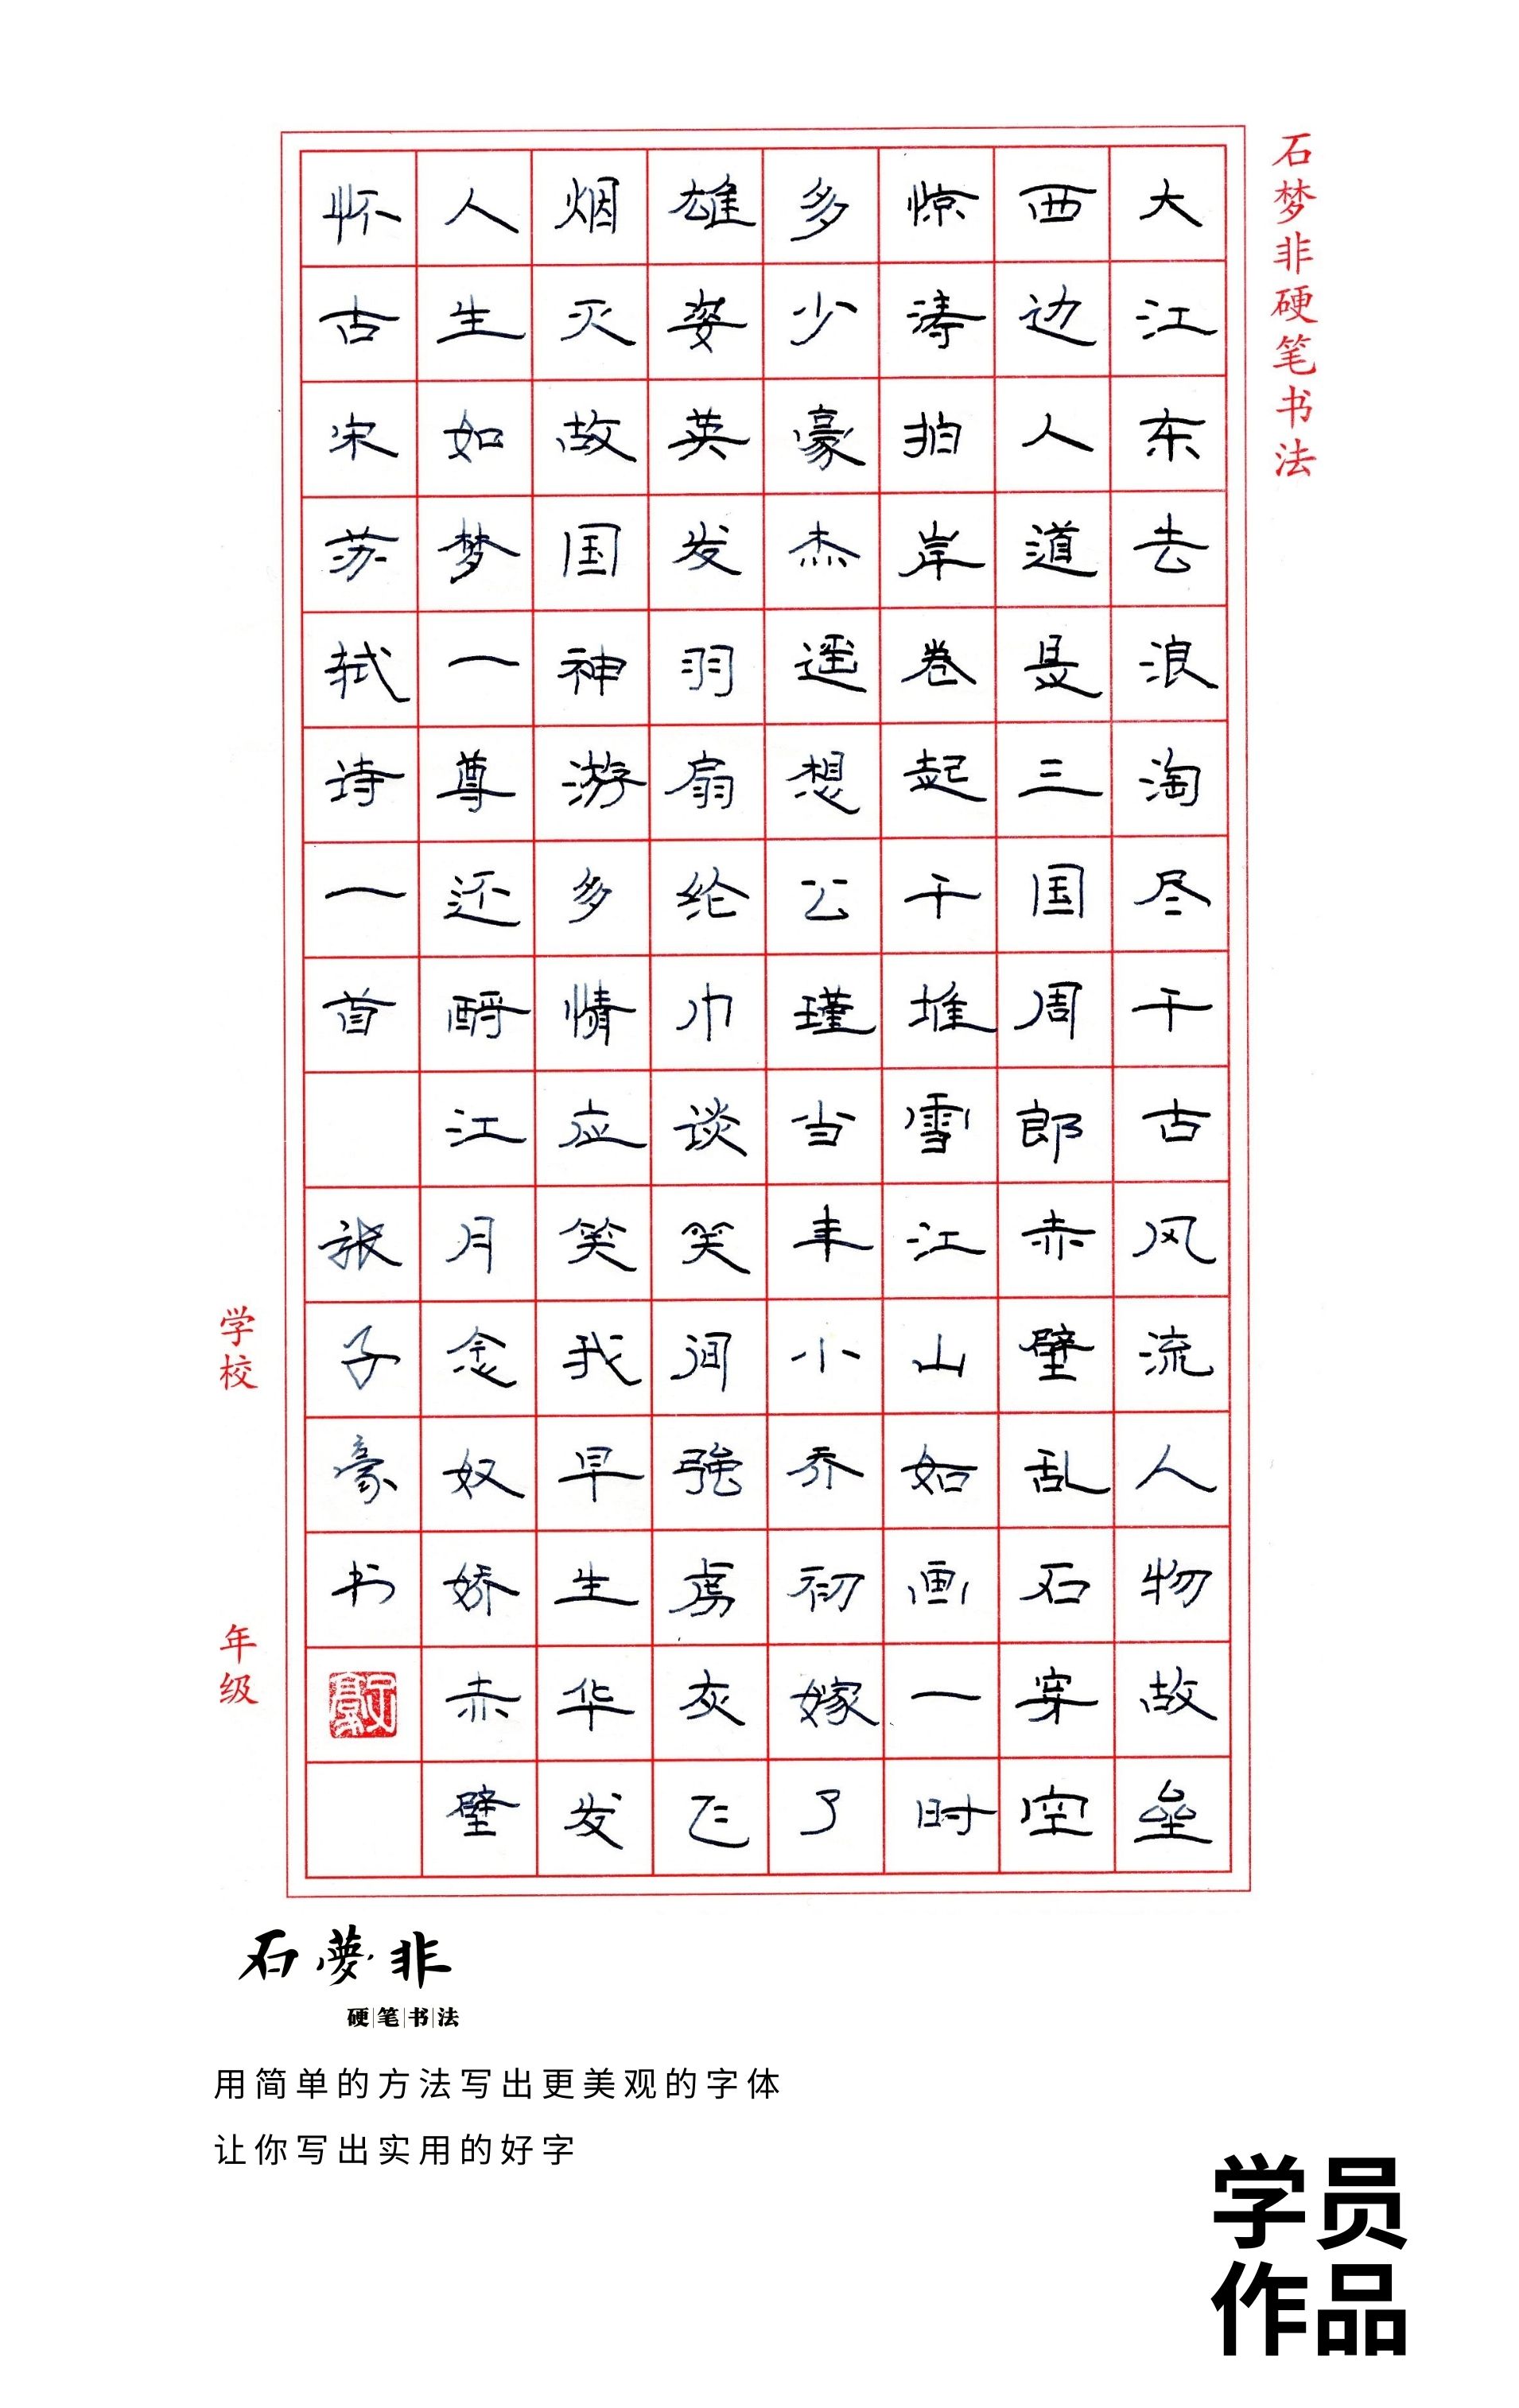 石梦非硬笔书法
大江东去浪淘尽千古风流人物故垒
西边人道是三国周郎赤壁乱石穿空
惊涛拍岸卷起千堆雪江山如画一时
多少豪杰遥想公瑾当年小乔初嫁了
雄姿英发羽扇纶巾谈笑间強虏灰飞
烟灭故国神游多情应笑我早生华发
人生如梦一尊还酹江月念奴娇赤壁
怀古宋苏轼诗一首 张子豪书
学校 年级
石夢非
硬笔书法
用简单的方法写出更美观的字体
让你写出实用的好字
学员
作品